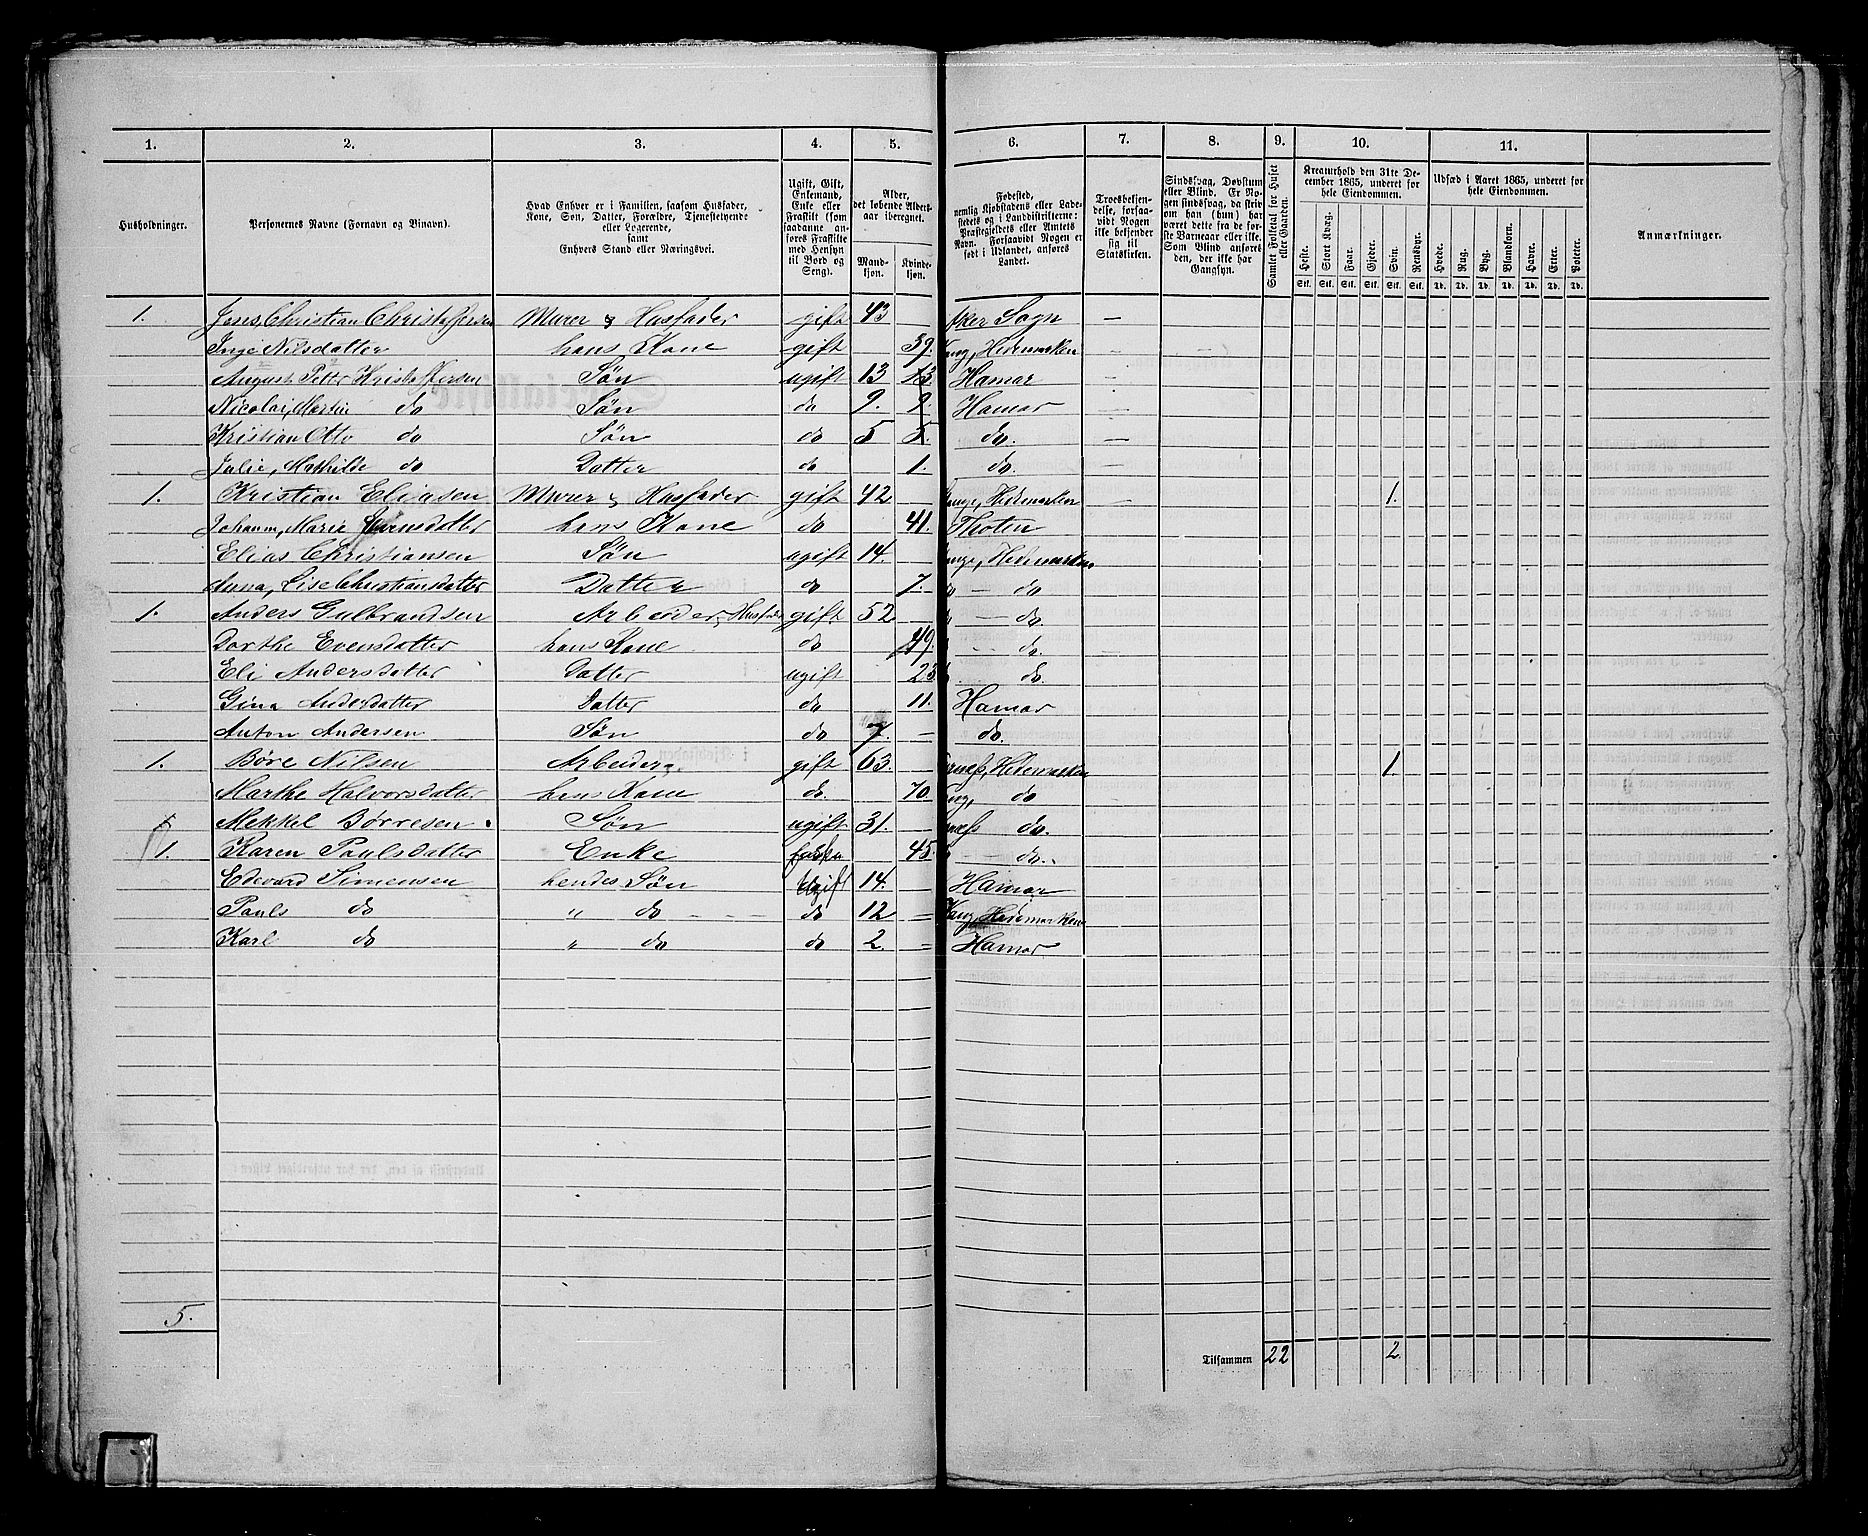 1. 2. 3. 4. 5. 6. 7. 8. 9. 10. 11.
Husholdninger.
Personernes Navne (Fornavn og Binavn).
Hvad Enhver er i Familien, saasom Husfader,
Kone, Søn, Datter, Forældre, Tjenestetyende
eller Logerende,
samt
Enhvers Stand eller Næringsvei.
Ugift, Gift,
Enkemand,
Enke eller
Fraskilt (som
saadanne an-
føres Fraskilte
med Hensyn
til Bord og
Seng).
Alder,
det løbende Alders-
aar iberegnet.
Mand-
kjøn.
Kvinde-
kjøn.
Fødested,
nemlig Kjøbstadens eller Lade-
stedets og i Landdistrikterne:
Præstegjeldets eller Amtets
Navn. Forsaavidt Nogen er
født i Udlandet, anføres
Landet.
Troesbekjen-
delse, forsaa-
vidt Nogen
ikke bekjender
sig til
Statskirken.
Sindssvag, Døvstum
eller Blind. Er No-
gen sindssvag, da skriv
om han (hun) har
været dette fra de før-
ste Barneaar eller ikke.
Som Blind anføres
den, der ikke har
Gangsyn.
Samlet Folketal for Huset
eller Gaarden.
Kreaturhold den 31te De-
cember 1865, underet for
hele Eiendommen.
Heste. Stort Kvæg. Faar. Gjeder. Svin. Rensdyr.
Stk. Stk. Stk. Stk. Stk. Stk.
Udsæd i Aaret 1865, underet for
hele Eiendommen.
Hvede. Rug. Byg. Blandkorn. Havre. Erter. Poteter.
Td. Td. Td. Td. Td. Td. Td.
Anmærkninger.
1. Jens, Christian Christoffersen Murer & Husfader gift 43 Aker Sogn —
Inge Nilsdatter hans Kone gift 39. Vang, Hedemarken —
August Petter Kristoffersen Søn ugift 13 13 Hamar —
Nicolai, Martin do Søn do 9. 9. Hamar —
Kristian Otto do Søn do 5 5. do. —
Julie, Mathilde do Datter do 1. do. —
1. Kristian Eliasen Murer & Husfader gift 42 — Vange, Hedemarken — 1.
Johanne, Marie hans Kone do 41. Thoten
Elias Christiansen Søn ugift 14. — Vange, Hedemarken
Anna, Lise Christiansdatter Datter do 7. do — do
1. Anders Gulbrandsen Arbeider, Husfader gift 52 do — do.
Dorthe Evensdatter hans Kone do 49. do.
Eli Andersdatter Datter ugift 23. do.
Gina Andersdatter Datter do 11. Hamar
Anton Andersen Søn do 7 — do.
1. Børe Nilsen Arbeider gift 63. Hedemarken 1.
Marthe Halvorsdatter hans Kone do. 70 Vang, do
Mikkel Børresen Søn ugift 31. do.
1. Karen Paulsdatter Enke 45. do.
Edevard Simensen hendes Søn Ugift 14. — Hamar
Pauls do " do do 12 — Vang, Hedemarken
Karl do " do do 2. — Hamar
5.
Tilsammen 22 2